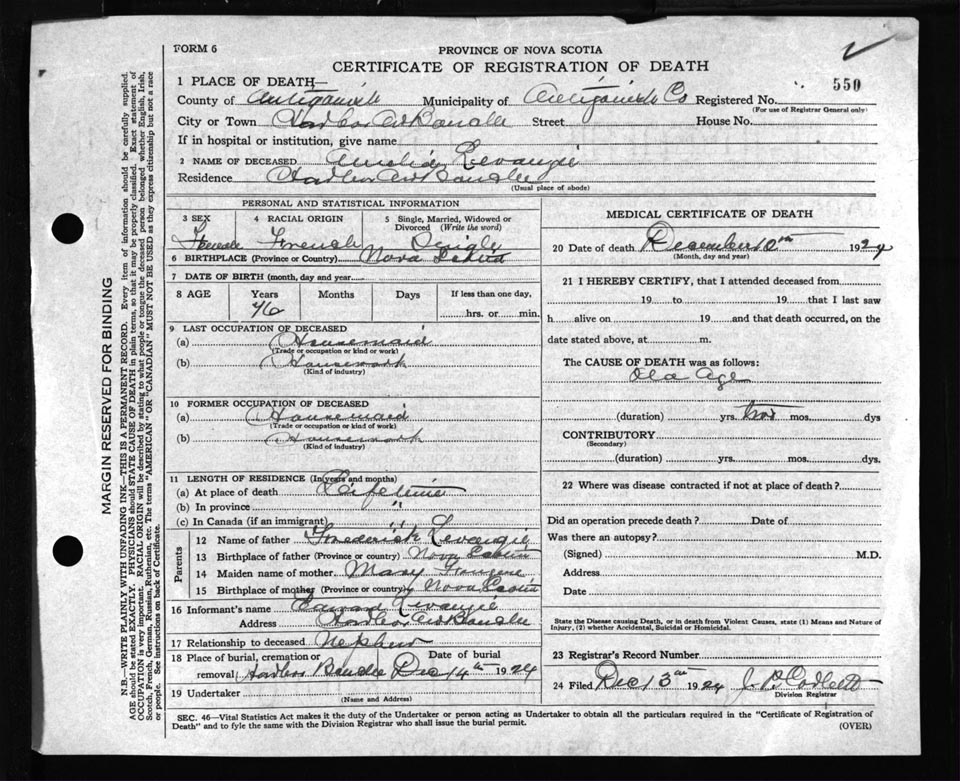 FORM 6
PROVINCE OF NOVA SCOTIA
CERTIFICATE OF REGISTRATION OF DEATH
550
1 PLACE OF DEATH,—
County of Antigonish Municipality of Antigonish Co Registered No.
(For use of Registrar General only)
City or Town Harbor Au Bouche Street House No.
If in hospital or institution, give name
2 NAME OF DECEASED Amelia Levangie
Residence Harbor Au Bouche
(Usual place of abode)
PERSONAL AND STATISTICAL INFORMATION
3 SEX 4 RACIAL ORIGIN 5 Single, Married, Widowed or Divorced (Write the word)
Female French Single
6 BIRTHPLACE (Province or Country) Nova Scotia
7 DATE OF BIRTH (month, day and year)
8 AGE Years Months Days If less than one day,
76 hrs. or min.
9 LAST OCCUPATION OF DECEASED
(a) Housemaid
(Trade or occupation or kind or work)
(b) Housework
(Kind of industry)
10 FORMER OCCUPATION OF DECEASED
(a) Housemaid
(Trade or occupation or kind of work)
(b) Housework
(Kind of industry)
11 LENGTH OF RESIDENCE (In years and months)
(a) At place of death Lifetime
(b) In province "
(c) In Canada (if an immigrant) "
Parents
12 Name of father Frederick Levangie
13 Birthplace of father (Province or country) Nova Scotia
14 Maiden name of mother Mary
15 Birthplace of mother (Province or country) Nova Scotia
16 Informant's name Edward Levangie
Address Harbor Au Bouche
17 Relationship to deceased Nephew
18 Place of burial, cremation or removal Harbor Bouche Date of burial Dec 14th 1924
19 Undertaker
(Name and Address)
MEDICAL CERTIFICATE OF DEATH
20 Date of death December 10th 1924
(Month, day and year)
21 I HEREBY CERTIFY, that I attended deceased from
19 to 19 that I last saw
h alive on 19 and that death occurred, on the
date stated above, at m.
The CAUSE OF DEATH was as follows:
Old Age
(duration) yrs. two mos. dys
CONTRIBUTORY
(Secondary)
(duration) yrs. mos. dys.
22 Where was disease contracted if not at place of death?
Did an operation precede death? Date of
Was there an autopsy?
(Signed) M.D.
Address
Date
State the Disease causing Death, or in death from Violent Causes, state (1) Means and Nature of
Injury, (2) whether Accidental, Suicidal or Homicidal.
23 Registrar's Record Number
24 Filed Dec 13th 1924 J. P. Corbett
Division Registrar
SEC. 46—Vital Statistics Act makes it the duty of the Undertaker or person acting as Undertaker to obtain all the particulars required in the "Certificate of Registration of
Death" and to fyle the same with the Division Registrar who shall issue the burial permit.
(OVER)
MARGIN RESERVED FOR BINDING
N.B.—WRITE PLAINLY WITH UNFADING INK—THIS IS A PERMANENT RECORD. Every item of information should be carefully supplied.
AGE should be stated EXACTLY. PHYSICIANS should STATE CAUSE OF DEATH in plain terms, so that it may be properly classified. Exact statement of
OCCUPATION is very important. RACIAL ORIGIN will be described by stating to what people or tongue the deceased person belonged whether English, Irish,
Scotch, French, German, Russian, Ruthenian, etc. The terms "AMERICAN" OR "CANADIAN" MUST NOT BE USED as they express citizenship but not a race
or people. See instructions on back of Certificate.